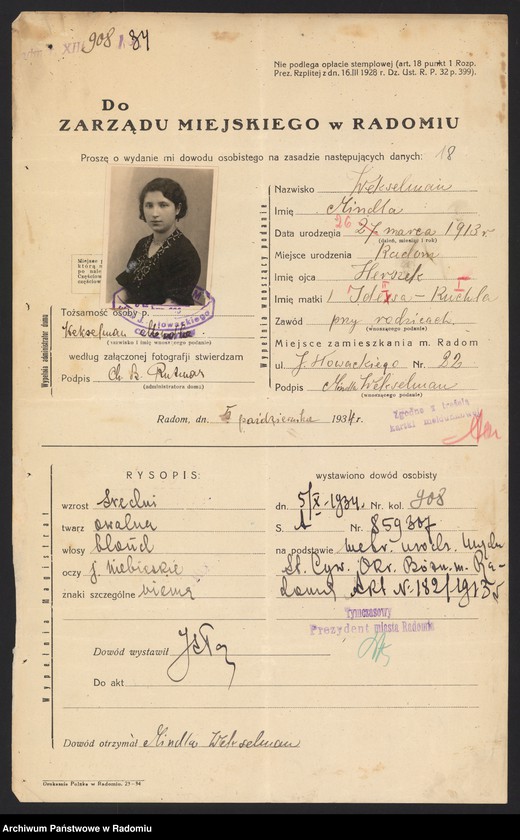 908 34
Nie podlega opłacie stemplowej (art. 18 punkt 1 Rozp.
Prez. Rzplitej z dn. 16.III 1928 r. Dz. Ust. R. P. 32 p. 399).
Do
ZARZĄDU MIEJSKIEGO w RADOMIU
Proszę o wydanie mi dowodu osobistego na zasadzie następujących danych: 18
Wypełnia wnoszący podanie
Nazwisko Wekselman
Imię Mindla
26
Data urodzenia 27 marca 1913 r
(dzień, miesiąc i rok)
Miejsce urodzenia Radom
Imię ojca Herszek
Imię matki Ruchla
Zawód przy rodzicach
(wnoszącego podanie)
Miejsce zamieszkania m. Radom
ul. J. Słowackiego Nr. 22
Podpis Mindla Wekselman
(wnoszącego podanie)
Wypełnia administrator domu
Tożsamość osoby p.
Wekselman Mindla
(nazwisko i imię wnoszącego podanie)
według załączonej fotografji stwierdzam
Podpis Ch. B. Rutman
(administratora domu)
Radom, dn. 5 października 1934 r.
Zgodne z treścią
kartki meldunkowej
Wypełnia Magistrat
RYSOPIS:
wzrost średni
twarz owalna
włosy blond
oczy j. niebieskie
znaki szczególne niema
wystawiono dowód osobisty
dn. 5/X-1934. Nr. kol. 908
S. A Nr. 859307
na podstawie metr. urodz. Urzędu
St. Cyw. Okr. Bóżn. m. Ra-
domia Akt N. 182/1913 r
Tymczasowy
Prezydent miasta Radomia
Dowód wystawił
Do akt
Dowód otrzymał Mindla Wekselman
Drukarnia Polska w Radomiu.
Archiwum Państwowe w Radomiu